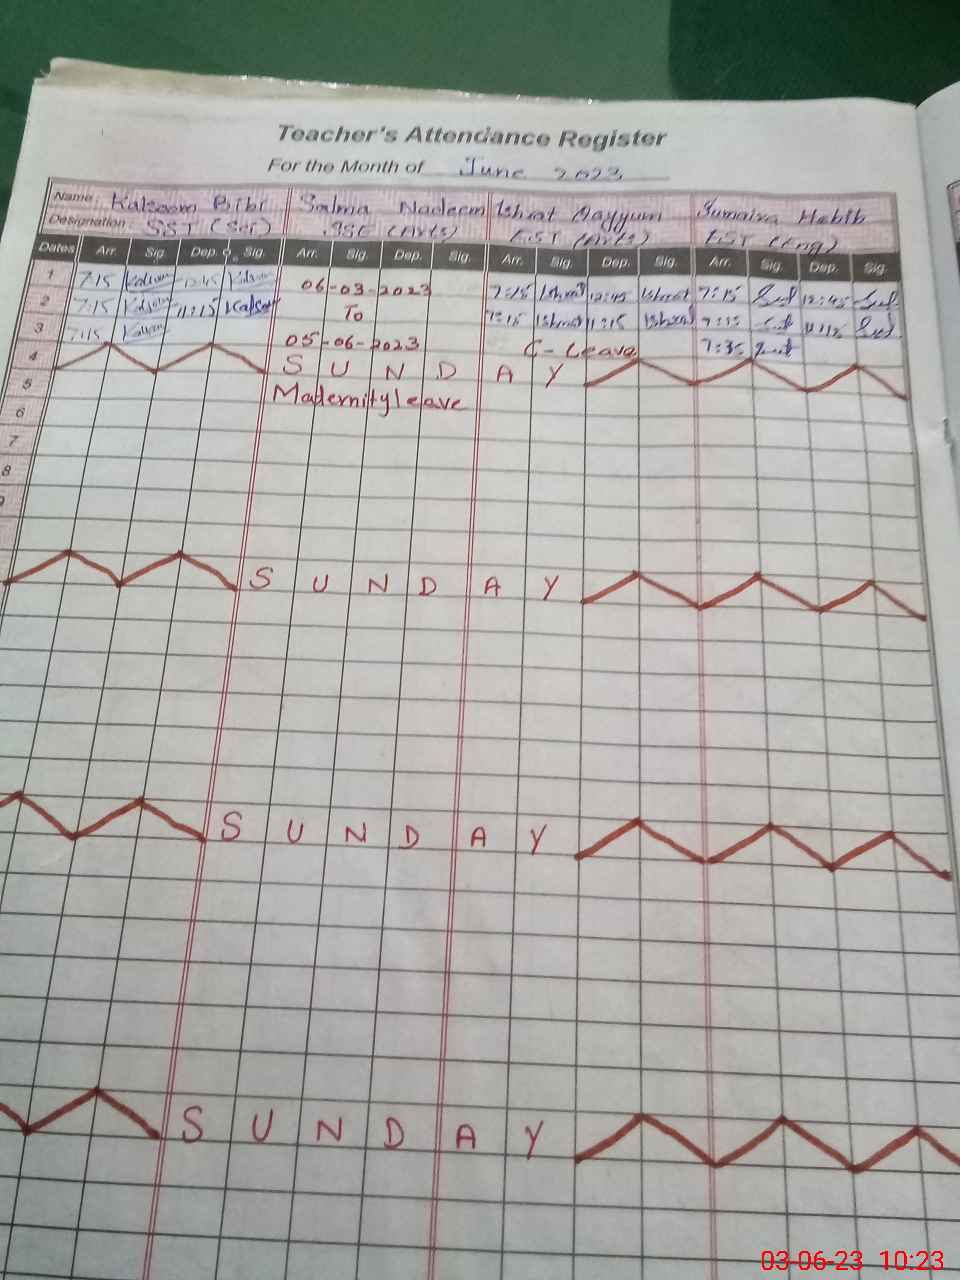 Teacher's Attendance Register
For the Month of June 2023
Name Kalsoom Bibi Salma Nadeem Ishrat Qayyum Sumaira Habib
Designation SST (Sci) SSE (Arts) EST (Arts) EST (Eng)
Dates Arr. Sig. Dep. Sig. Arr. Sig. Dep. Sig. Arr. Sig. Dep. Sig. Arr. Sig. Dep. Sig.
1 7:15 Kalsoom 12:45 Kalsoom 06-03-2023 7:15 Ishrat 12:45 Ishrat 7:15 12:45
2 7:15 Kalsoom 11:15 Kalsoom To 7:15 Ishrat 11:15 Ishrat 7:15 11:15
3 7:15 Kalsoom 05-06-2023 C-Leave 7:35
4 S U N D A Y
5 Madernity leave
6
7
8
9
S U N D A Y
S U N D A Y
S U N D A Y
03-06-23 10:23